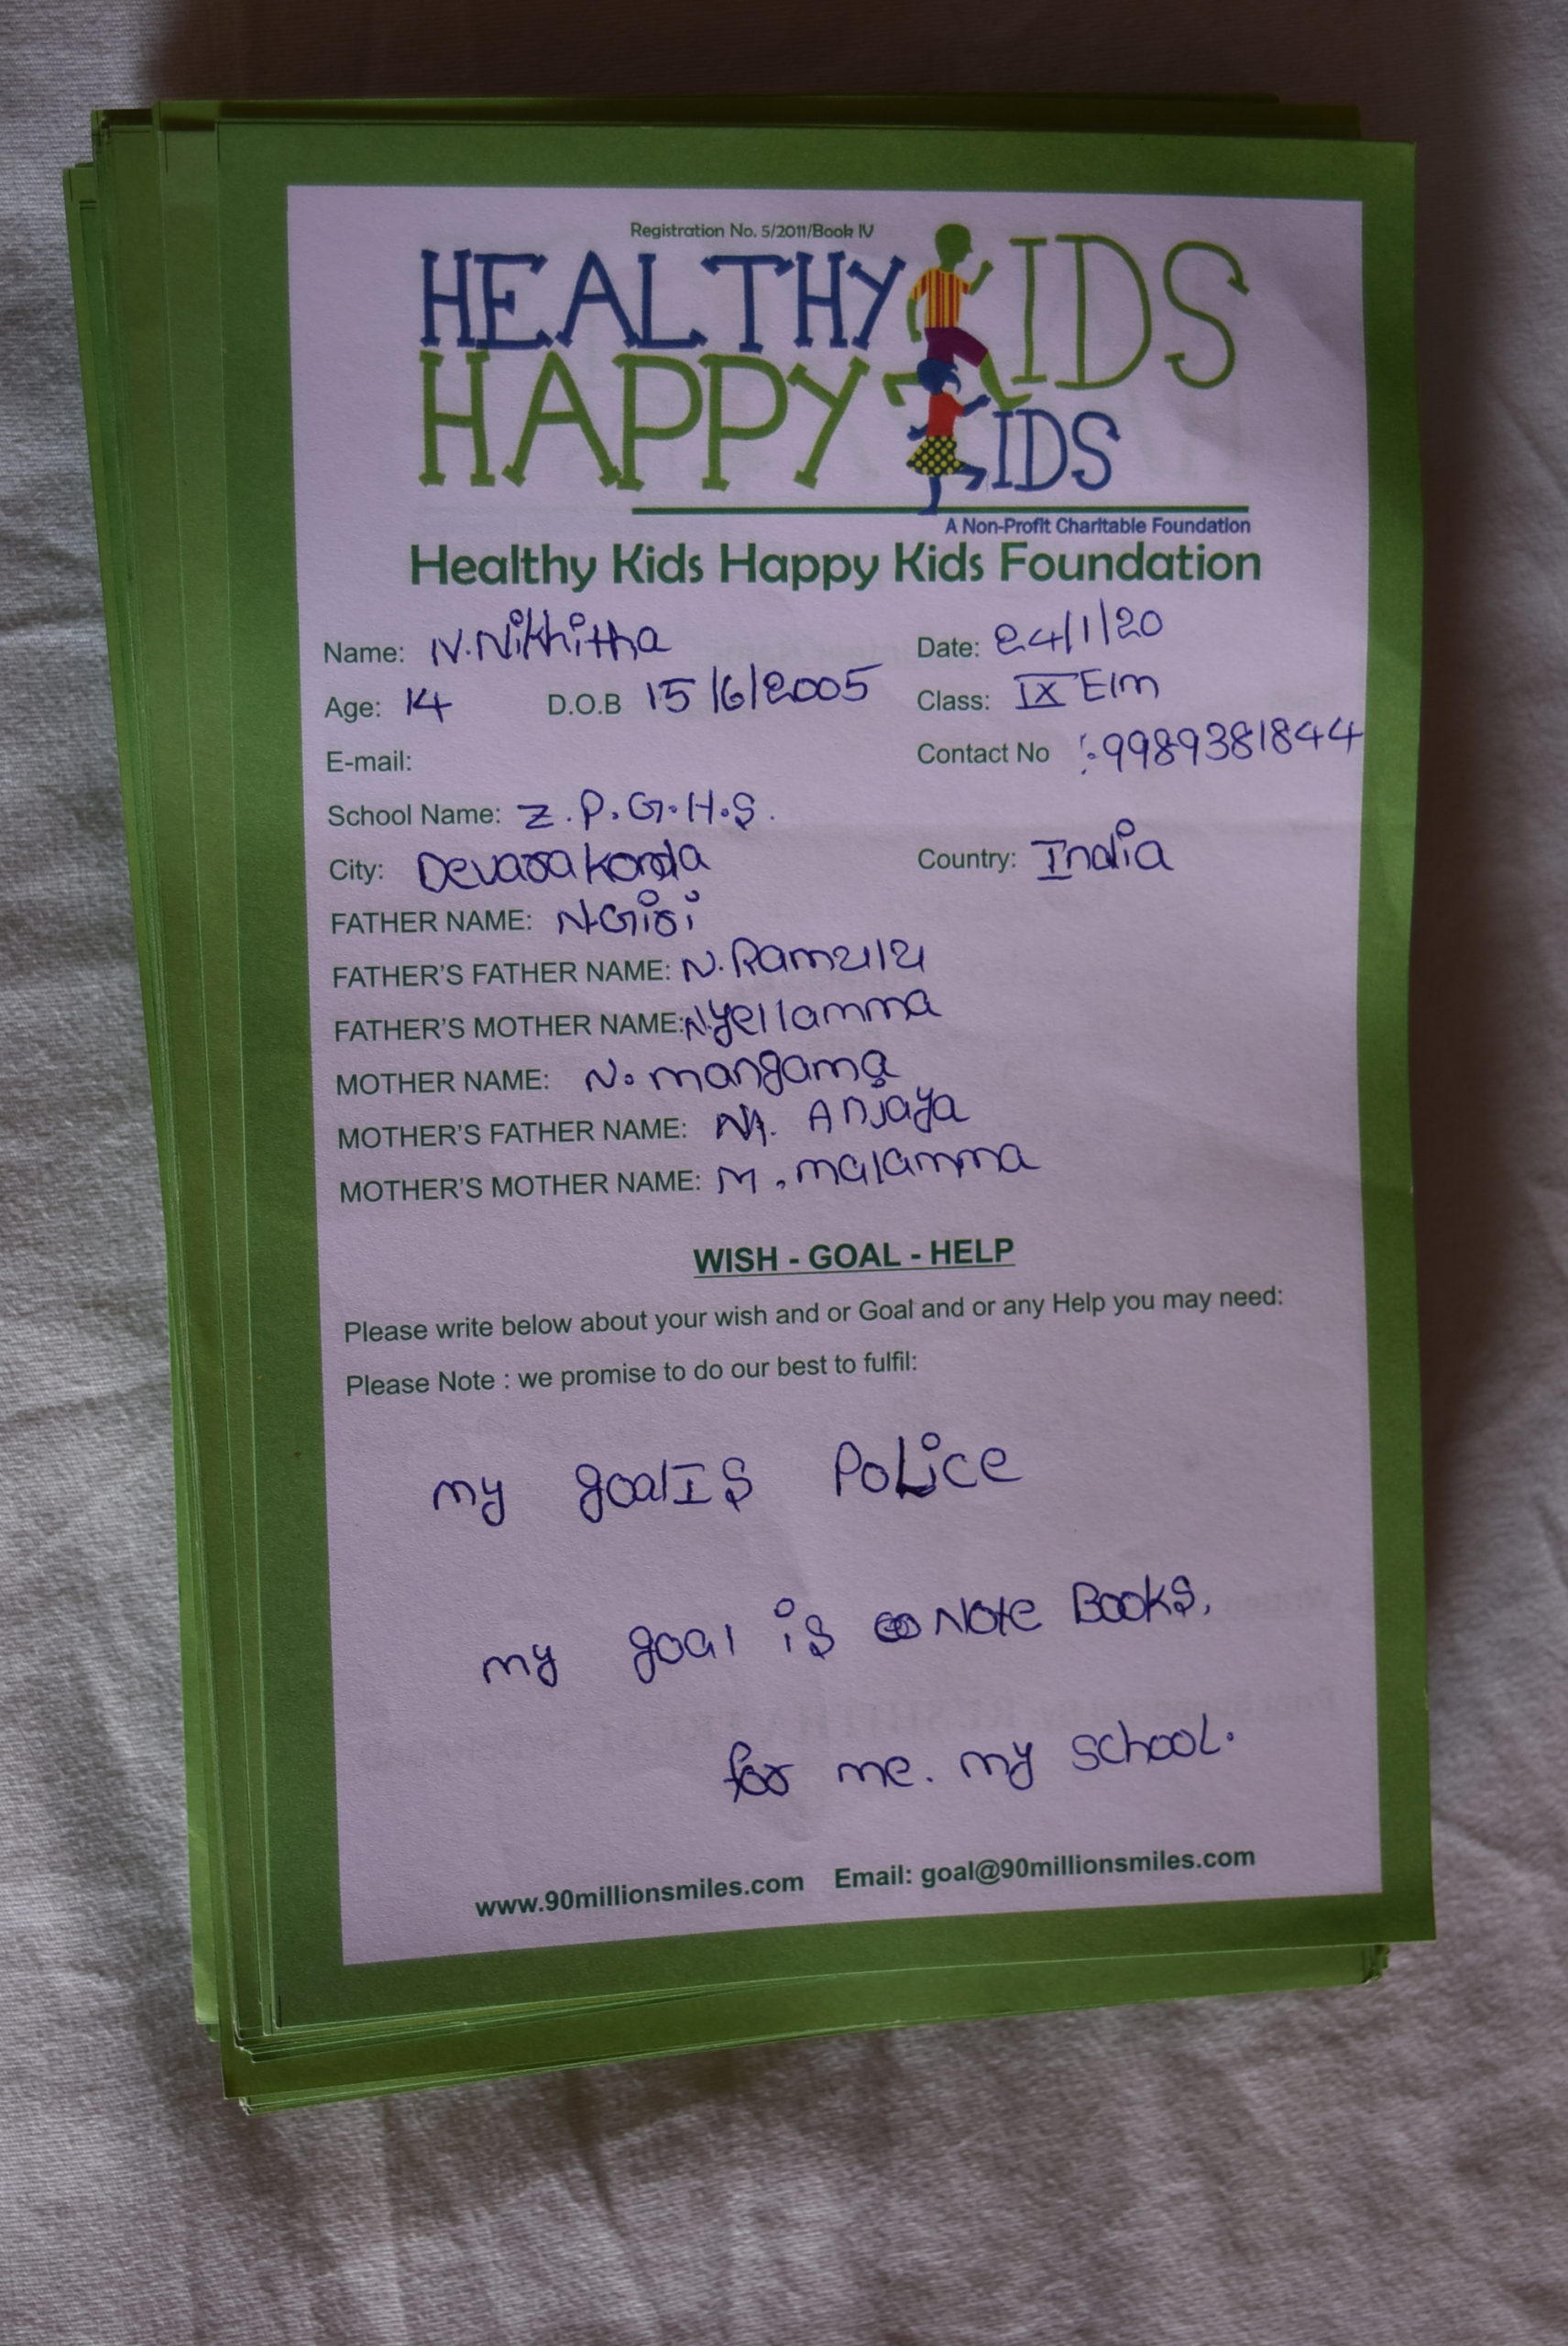 Registration No. 5/2011/Book IV
HEALTHY KIDS
HAPPY KIDS
A Non-Profit Charitable Foundation
Healthy Kids Happy Kids Foundation
Name: N.Nikhitha Date: 24/1/20
Age: 14 D.O.B 15/6/2005 Class: IX E/m
E-mail: Contact No : 9989381844
School Name: Z.P.G.H.S.
City: Devarakonda Country: India
FATHER NAME: N.Giri
FATHER'S FATHER NAME: N. Ramulu
FATHER'S MOTHER NAME: N.yellamma
MOTHER NAME: N. mangama
MOTHER'S FATHER NAME: M. Anjaya
MOTHER'S MOTHER NAME: M. malamma
WISH - GOAL - HELP
Please write below about your wish and or Goal and or any Help you may need:
Please Note : we promise to do our best to fulfil:
my goal IS PoLice
my goal is Note Books,
for me. my school.
www.90millionsmiles.com Email: goal@90millionsmiles.com